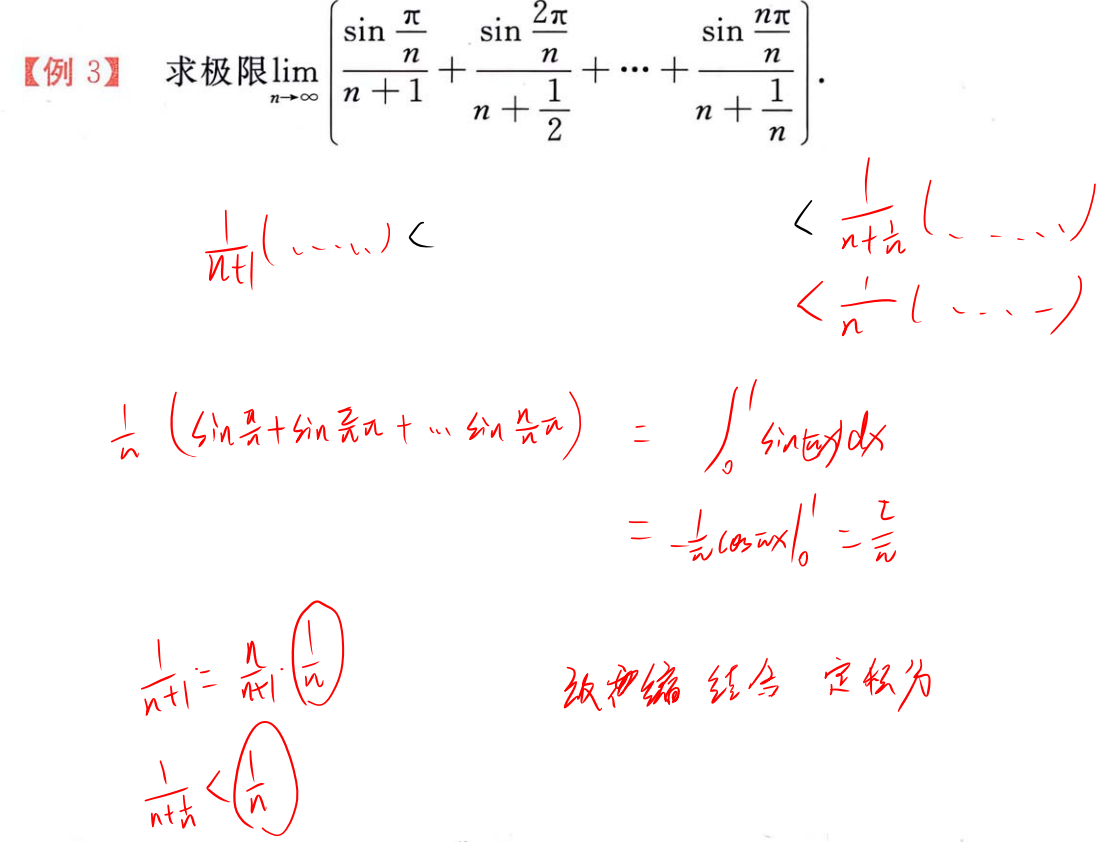 【例 3】 求极限lim_{n→∞} [ (sin π/n)/(n+1) + (sin 2π/n)/(n+1/2) + ⋯ + (sin nπ/n)/(n+1/n) ].
1/(n+1) (......) < < 1/(n+1/n) (......)
< 1/n (......)
1/n (sin π/n + sin 2/n π + ... sin n/n π) = ∫₀¹ sin(πx)dx
= -1/π cosπx |₀¹ = 2/π
1/(n+1) = n/(n+1) · 1/n
放和缩 结合 定积分
1/(n+1/n) < 1/n